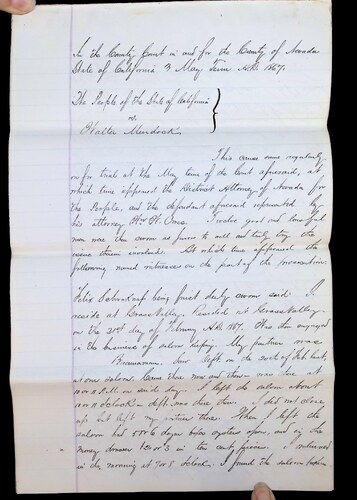 In the County Court in and for the County of Nevada
State of California } May Term A.D. 1867.
The People of the State of California }
vs.
Walter Murdock
This cause came regularly
on for trial at the May term of the Court aforesaid, at
which time appeared the District Attorney of Nevada for
the People, and the defendant aforesaid represented by
his attorney Twelve good and lawful
men were then sworn as jurors to well and truly try the
issue therein involved. At which time appeared the
following named witnesses on the part of the prosecution:
Felix being first duly sworn said I
reside at Grass Valley. Resided at Grass Valley
on the 21st day of February A.D. 1867. Was then engaged
in the business of saloon keeping. My partner was
left on the
at our saloon. there was and there was there at
10 or 11 P.M. on said day. I left the saloon about
10 or 11 O'clock deft. was there then. I did not close
up but left my partner there. When I left the
saloon had 5 or 6 upon, and in the
money drawer in ten cent pieces. I returned
in the morning at 7 or 8 O'clock. I found the saloon